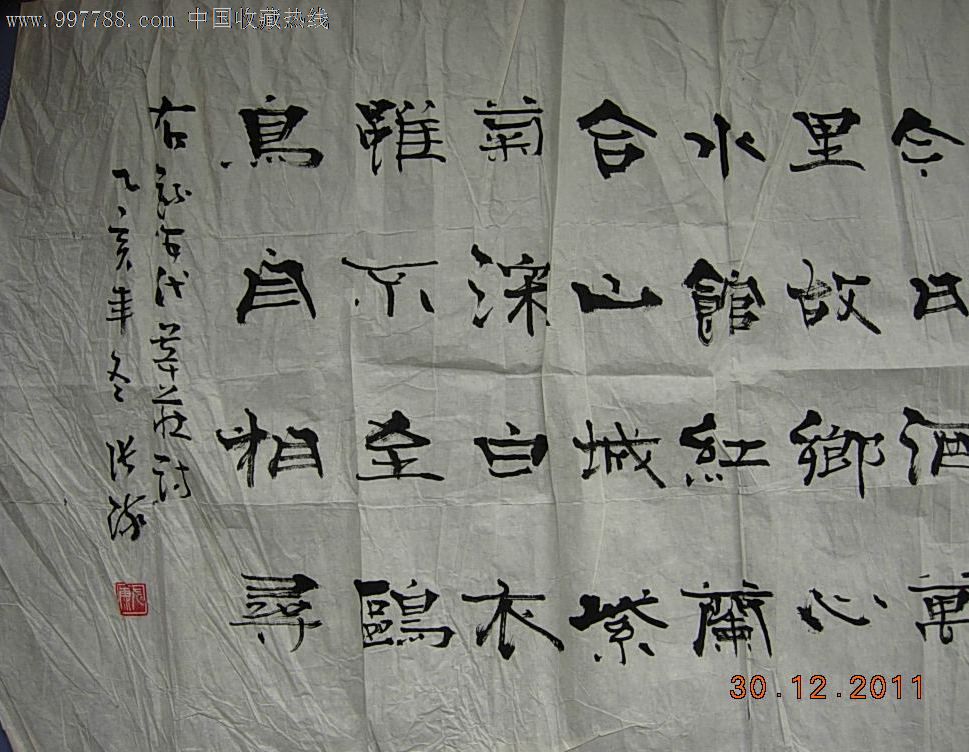 www.997788.com 中国收藏热线
今日酒萬
里故鄉心
水館紅蘭
合山城紫
菊深白衣
雖不至鷗
鳥自相尋
右錄古代韋莊詩
乙亥年冬
30.12.2011